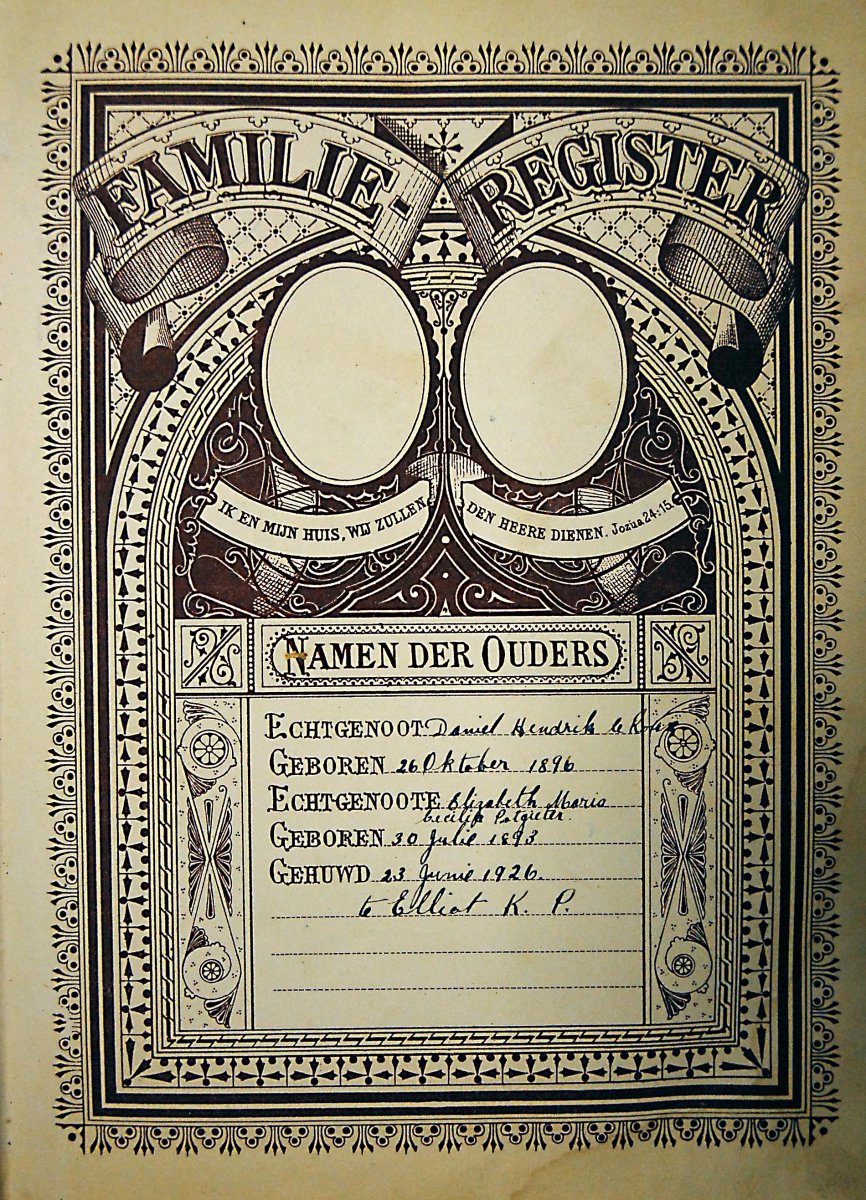 FAMILIE-REGISTER
IK EN MIJN HUIS, WIJ ZULLEN
DEN HEERE DIENEN. Jozua 24:15.
NAMEN DER OUDERS
ECHTGENOOT Daniel Hendrik le Roux
GEBOREN 26 Oktober 1896
ECHTGENOOTE Elizabeth Maria
Cecilia Potgieter.
GEBOREN 30 Julie 1893
GEHUWD 23 Junie 1926.
te Elliot K. P.